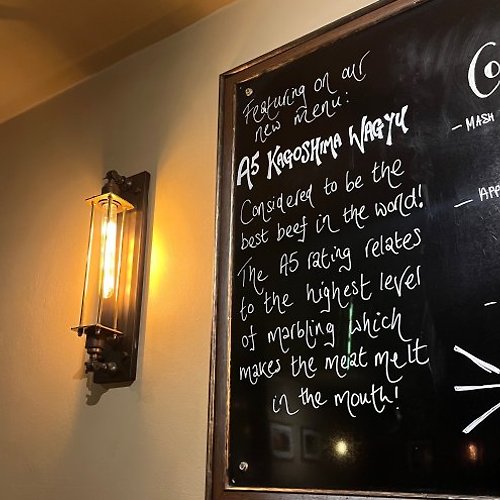 Featuring on our
new menu:
A5 KAGOSHIMA WAGYU
Considered to be the
best beef in the world!
The A5 rating relates
to the highest level
of marbling which
makes the meat melt
in the mouth!
Co
– MASH
– 'APP